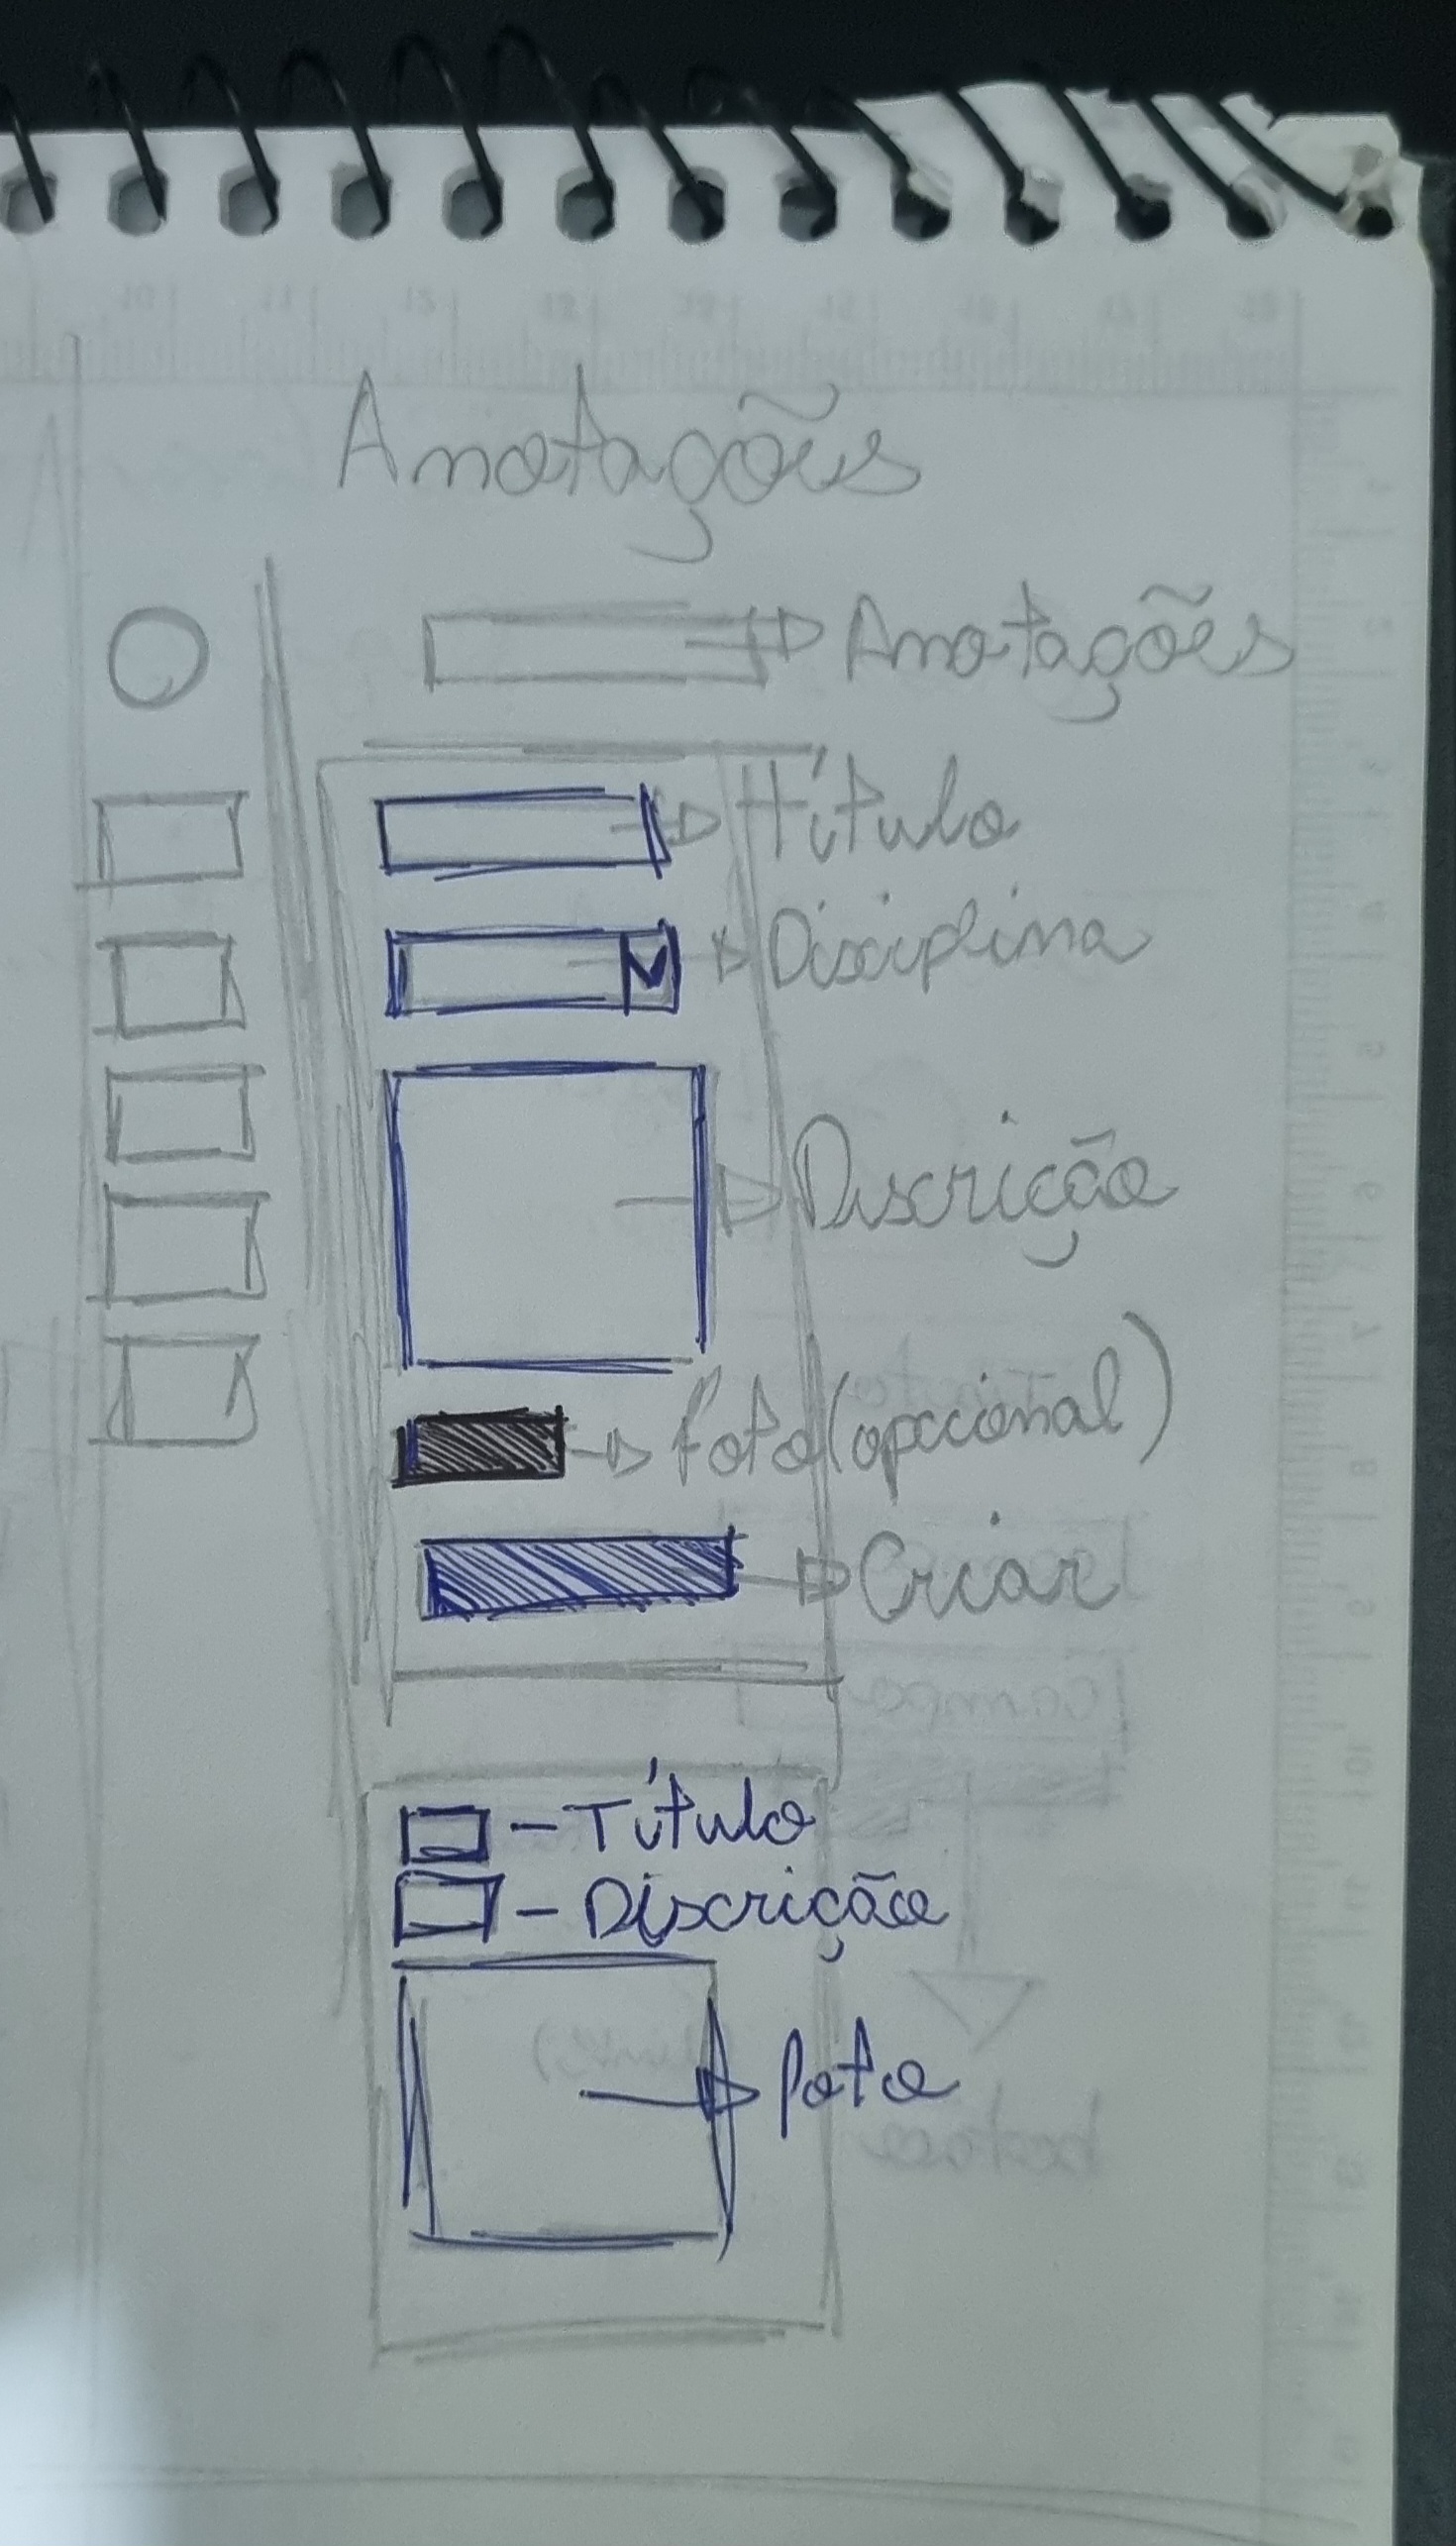 Anotações
Anotações
Título
Disciplina
Discrição
Foto (opccional)
Criar
- Título
- Discrição
Foto